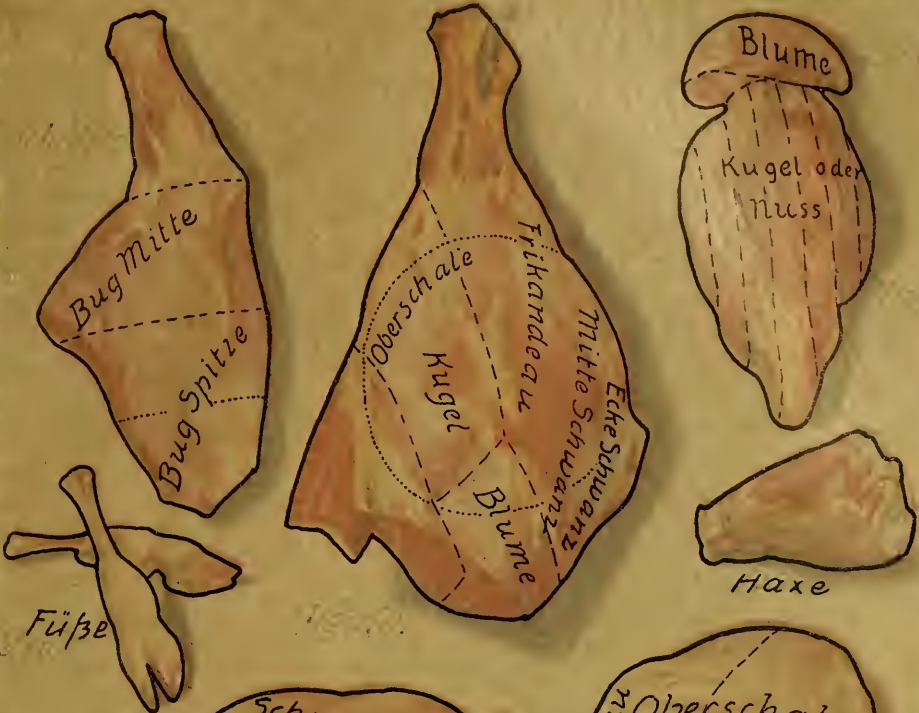 Bug Mitte
Bug Spitze
Füße
Oberschale
Kugel
Blume
Frikandeau
Mitte Schwanz
Ecke Schwanz
Blume
Kugel oder
Nuss
Haxe
Sch
Oberschal